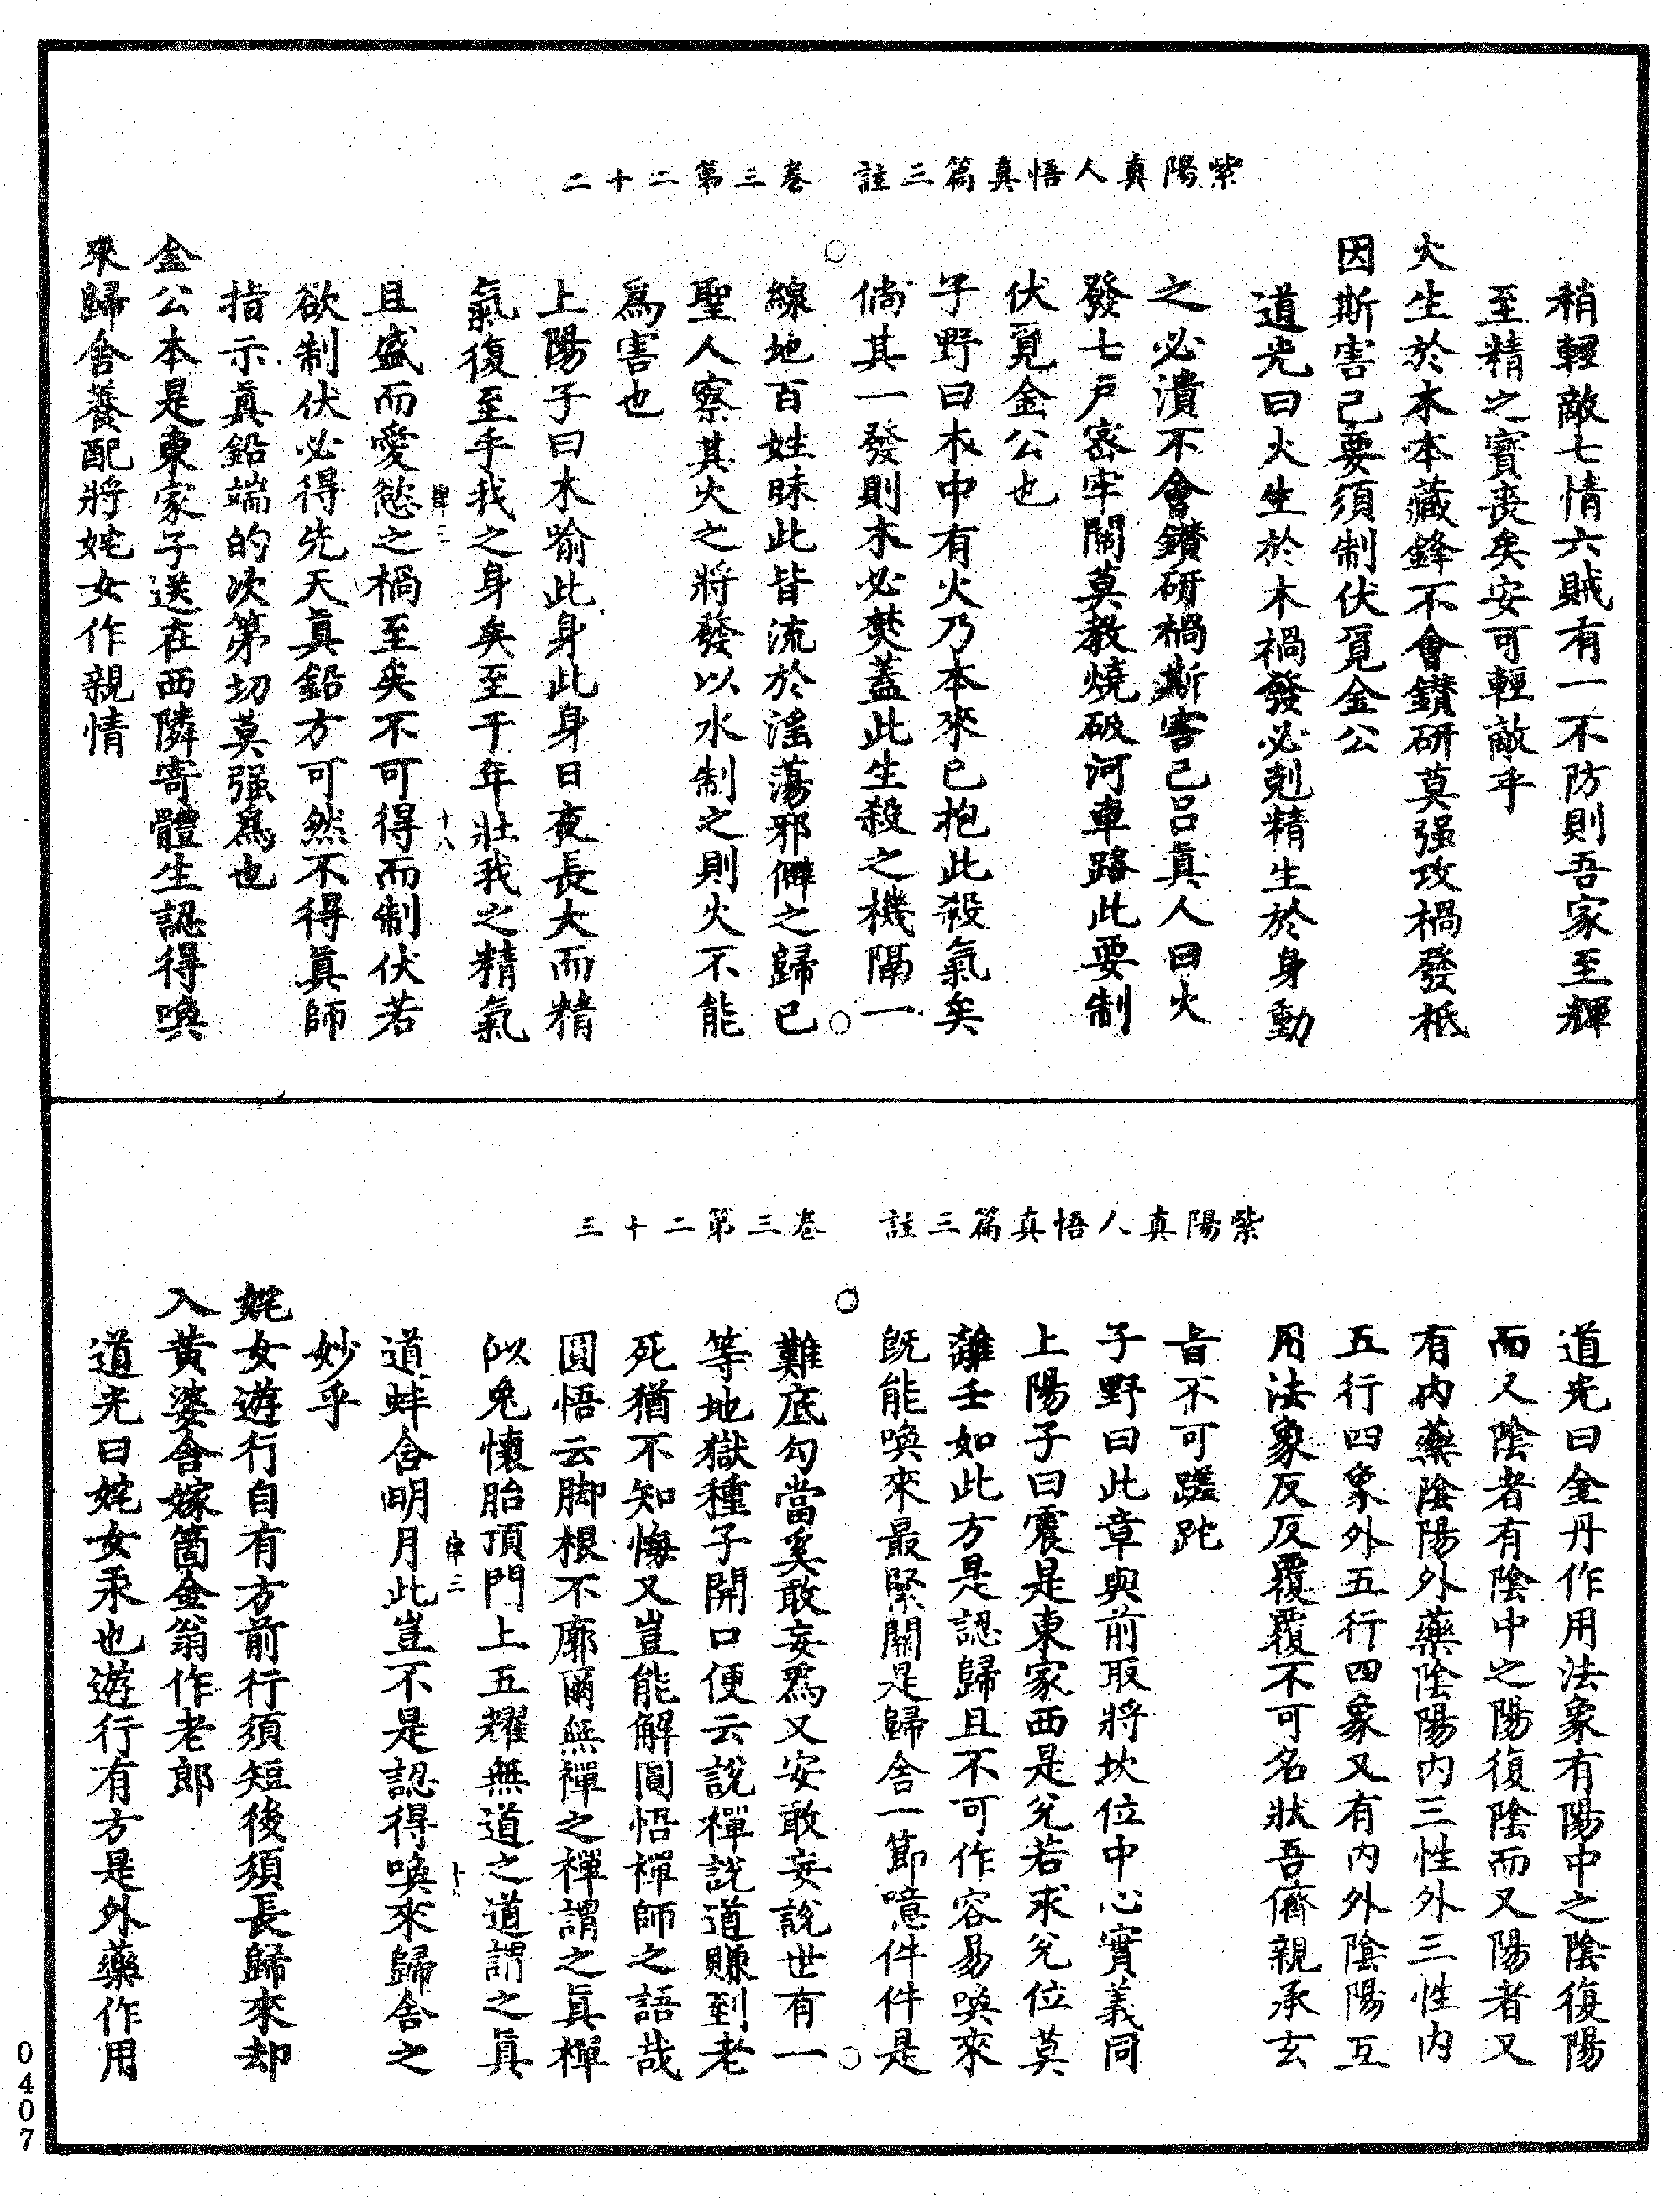 紫陽真人悟真篇三註　卷三第二十二
稍輕敵七情六賊有一不防則吾家至輝
至精之寳丧矣安可輕敵乎
火生於木本藏鋒不會鑚研莫强攻禍發秖
因斯害己要須制伏覓金公
道光曰火生於木禍發必剋精生於身動
之必潰不會鑚研禍斯害己吕眞人曰火
發七戸密牢關莫教燒破河車路此要制
伏覓金公也
子野曰木中有火乃本來已抱此殺氣矣
倘其一發則木必焚蓋此生殺之機隔一
線地百姓昧此皆流於滛蕩邪僻之歸已
聖人察其火之將發以水制之則火不能
爲害也
上陽子曰木喻此身此身日夜長大而精
氣復至乎我之身矣至于年壯我之精氣
且盛而愛慾之禍至矣不可得而制伏若
欲制伏必得先天眞鉛方可然不得眞師
指示眞鉛端的次第切莫强爲也
金公本是東家子送在西隣寄體生認得喚
來歸舍養配將姹女作親情
紫陽真人悟真篇三註　卷三第二十三
道光曰金丹作用法象有陽中之陰復陽
而又陰者有陰中之陽復陰而又陽者又
有内藥陰陽外藥陰陽内三性外三性内
五行四象外五行四象又有内外陰陽互
用法象反反覆覆不可名狀吾儕親承玄
旨不可蹉跎
子野曰此章與前取將坎位中心實義同
上陽子曰震是東家西是兊若求兊位莫
離壬如此方是認歸且不可作容易喚來
旣能喚來最緊關是歸舍一節噫件件是
難底勾當奚敢妄爲又安敢妄說世有一
等地獄種子開口便云說禪說道賺到老
死猶不知悔又豈能解圓悟禪師之語哉
圓悟云脚根不廓爾無禪之禪謂之眞禪
似兔懷胎頂門上五耀無道之道謂之眞
道蚌含明月此豈不是認得喚來歸舍之
妙乎
姹女遊行自有方前行須短後須長歸來却
入黄婆舍嫁箇金翁作老郎
道光曰姹女汞也遊行有方是外藥作用
0407